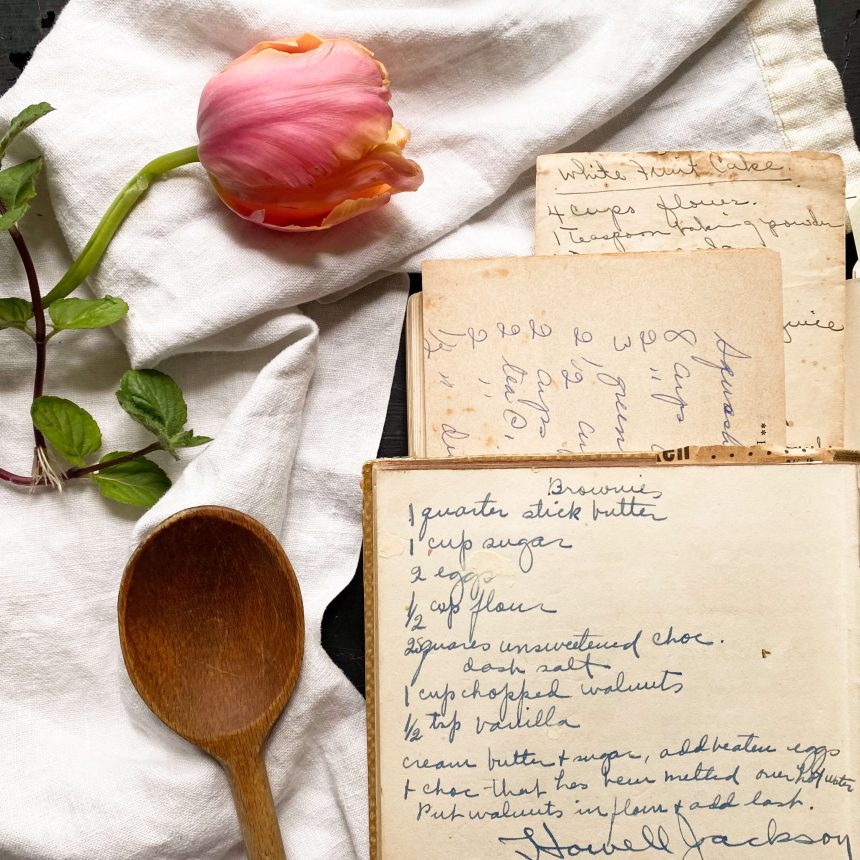 White Fruit Cake.
4 cups flower.
1 Teaspoon baking powder
juice
Squash
8 cups
2 "
3 green
2 1/2 cu
2 cups
2 teas.
2 "
1/2 "
** 1
ell
Brownies
1 quarter stick butter
1 cup sugar
2 eggs
1/2 cup flour
2 squares unsweetened choc.
dash salt
1 cup chopped walnuts
1/2 tsp vanilla
cream butter + sugar, add beaten eggs
+ choc that has been melted over hot water
Put walnuts in flour + add last.
Howell Jackson